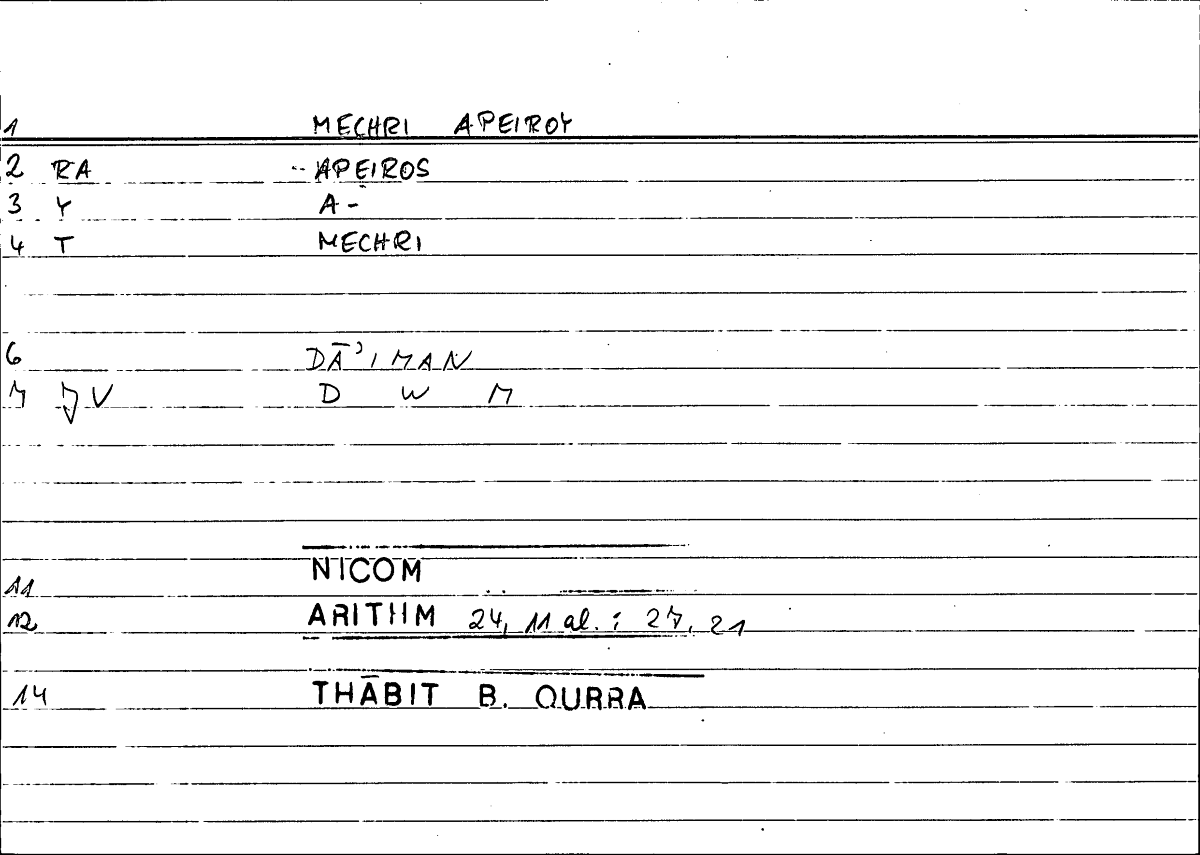 1 MECHRI APEIROY
2 RA APEIROS
3 Y A-
4 T MECHRI
6 DĀʾIMAN
7 V D W M
11 NICOM
12 ARITHM 24, 11 al. ; 27, 21
14 THĀBIT B. QURRA